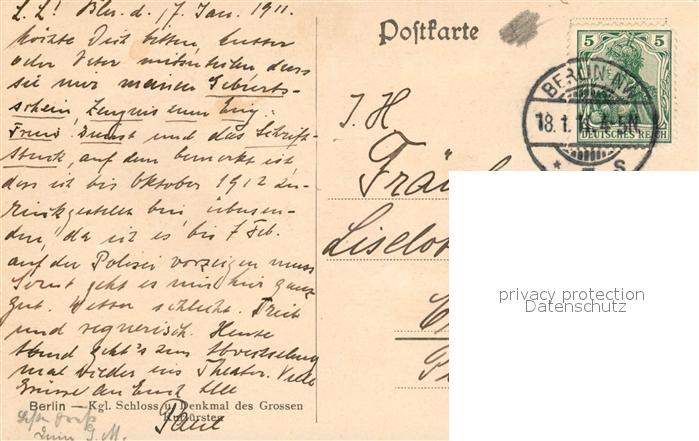 L. L.! Bln. d. 17. Jan. 1911.
möchte Dich bitten, Mutter
oder Vater mitzuteilen dass
sie mir meinen Geburts-
schein, Zeugnis zum Einj.
Freiw. Dienst und das Schrift-
stück, auf dem bemerkt ist
dass ich bis Oktober 1912 zu-
rückgestellt bin, übersen-
den, da ich es bis 1 Feb.
auf der Polizei vorzeigen muss
Sonst geht es mir hier ganz
gut. Wetter schlecht. Trüb
und regnerisch. Heute
Abend geht's zur Abwechslung
mal wieder ins Theater. Viele
Grüsse an Euch Alle
Paul
Berlin — Kgl. Schloss u. Denkmal des Grossen
Kurfürsten
Postkarte
5 5
DEUTSCHES REICH
BERLIN NW
18.1.11. 4-5N
* 7 S
I. H
Fräul
Liselot
privacy protection
Datenschutz